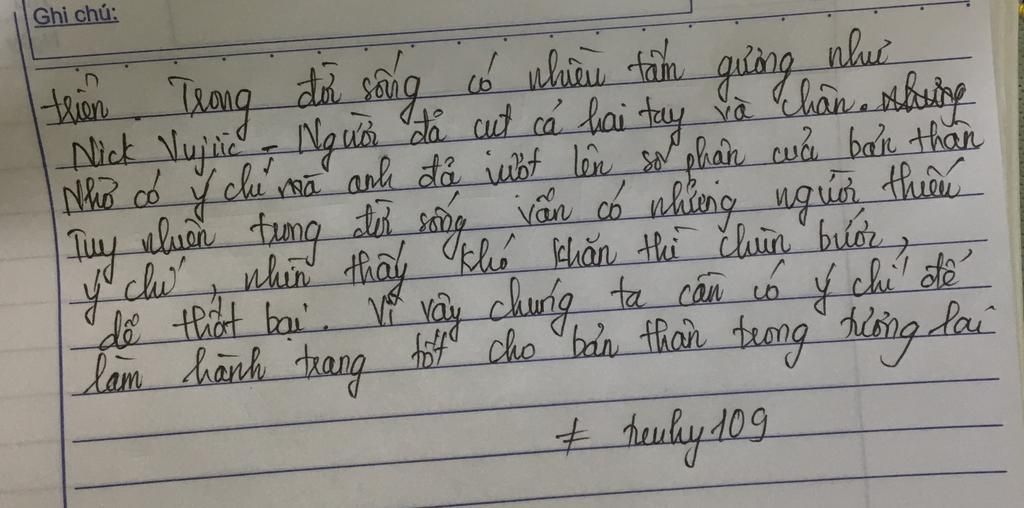 Ghi chú:
triển. Trong đời sống có nhiều tấm gương như
Nick Vujiic - Người đã cụt cả hai tay và chân. những
Nhờ có ý chí mà anh đã vượt lên số phận của bản thân
Tuy nhiên trong đời sống vẫn có những người thiếu
ý chí, nhìn thấy khó khăn thì chùn bước,
dễ thất bại. Vì vậy chúng ta cần có ý chí để
làm hành trang tốt cho bản thân trong tương lai
≠ teuhy109